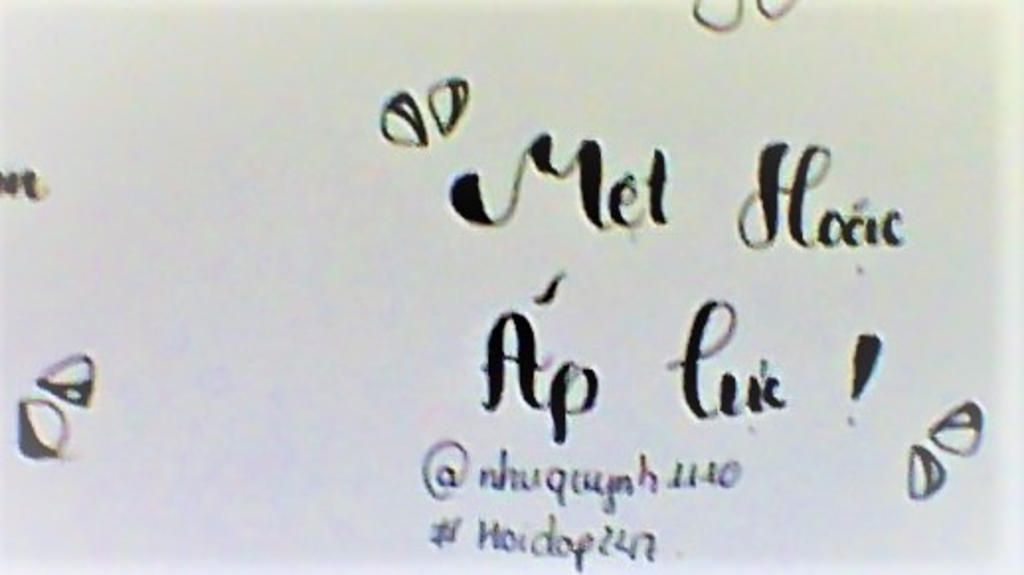 Mệt Hoặc
Áp lực !
@nhuquynh1110
#Hoidap247